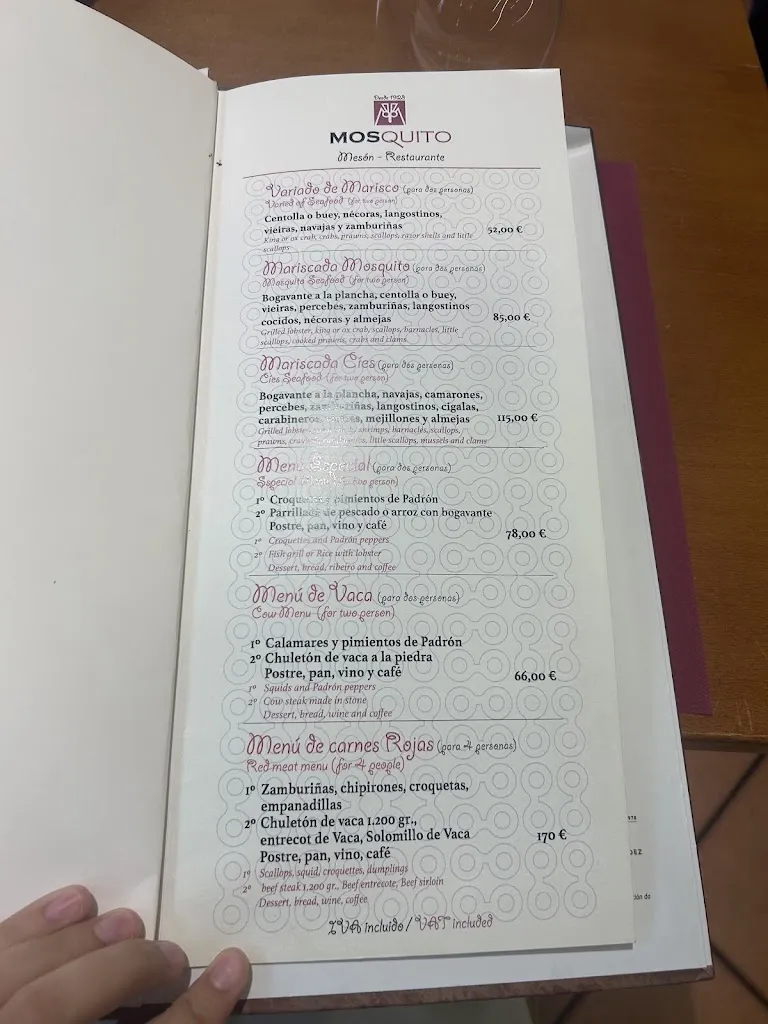 Desde 1928
MOSQUITO
Mesón - Restaurante
Variado de Marisco (para dos personas)
Varied of Seafood (for two person)
Centolla o buey, nécoras, langostinos,
vieiras, navajas y zamburiñas
52,00 €
King or ox crab, crabs, prawns, scallops, razor shells and little
scallops
Mariscada Mosquito (para dos personas)
Mosquito Seafood (for two person)
Bogavante a la plancha, centolla o buey,
vieiras, percebes, zamburiñas, langostinos
cocidos, nécoras y almejas
85,00 €
Grilled lobster, king or ox crab, scallops, barnacles, little
scallops, cooked prawns, crabs and clams
Mariscada Cíes (para dos personas)
Cies Seafood (for two person)
Bogavante a la plancha, navajas, camarones,
percebes, zamburiñas, langostinos, cigalas,
carabineros, mejillones y almejas
115,00 €
Grilled lobster, shrimps, barnacles, scallops,
prawns, little scallops, mussels and clams
Menú Especial (para dos personas)
Especial Menu (for two person)
1º Croquetas y pimientos de Padrón
2º Parrillada de pescado o arroz con bogavante
Postre, pan, vino y café
78,00 €
1º Croquettes and Padrón peppers
2º Fish grill or Rice with lobster
Dessert, bread, ribeiro and coffee
Menú de Vaca (para dos personas)
Cow Menu (for two person)
1º Calamares y pimientos de Padrón
2º Chuletón de vaca a la piedra
Postre, pan, vino y café
66,00 €
1º Squids and Padrón peppers
2º Cow steak made in stone
Dessert, bread, wine and coffee
Menú de carnes Rojas (para 4 personas)
Red meat menu (for 4 people)
1º Zamburiñas, chipirones, croquetas,
empanadillas
2º Chuletón de vaca 1.200 gr.,
entrecot de Vaca, Solomillo de Vaca
Postre, pan, vino, café
170 €
1º Scallops, squid, croquettes, dumplings
2º beef steak 1,200 gr., Beef entrecote, Beef sirloin
Dessert, bread, wine, coffee
IVA incluido / VAT included